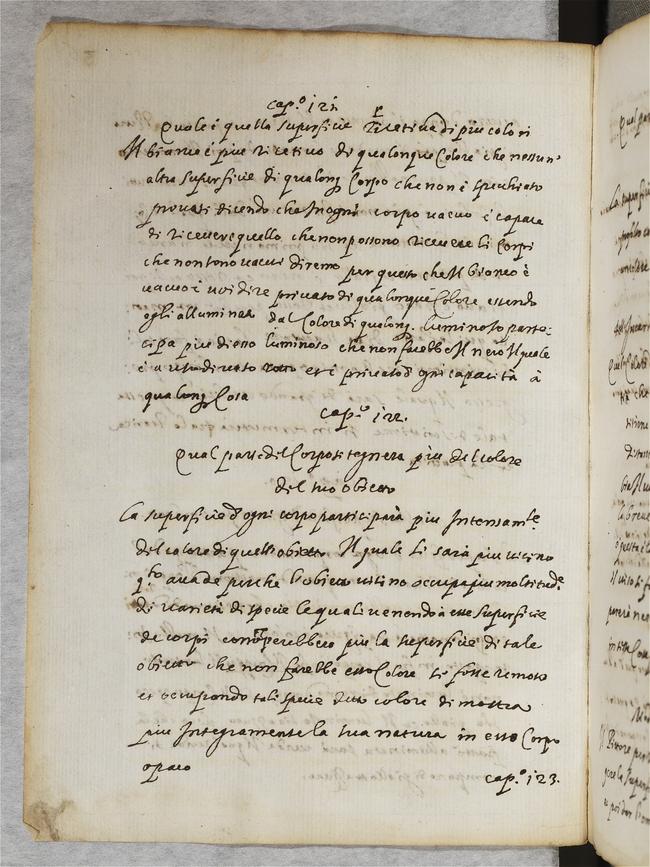 cap.º 121
Quale è quella superficie ricetiva di piu colori
Il bianco è piu ricetivo di qualonque Colore che nessun'
altra superficie di qualonq Corpo che non è spechiato
provasi dicendo che In ogni corpo vacuo è capace
di ricevere quello che non possono ricevere li Corpi
che non sono vacui diremo per questo che Il bianco è
vacuo è uvidire privato di qualonque Colore essendo
egli alluminato dal Colore di qualonq. luminoso parte-
cipa piu di esso luminoso che non farebbe Il nero Il quale
è a uso di vaso et è privato d'ogni capacità à
qualonq Cosa
cap.º 122.
Qual parte del Corpo si tegnera piu del colore
del suo obietto
La superficie d'ogni corpo participarà piu Intensam.te
del colore di quell'obietto Il quale li sarà piu vicino
q.to accade perche l'obietto vicino occupa piu moltitud.e
di varietà di specie le quali venendo à esse superficie
de corpi piu la superficie di tale
obietto che non farebbe esso Colore se fosse remoto
et occupando tali specie detto colore dimostra
piu Integramente la sua natura in esso Corpo
opaco
cap.º 123.